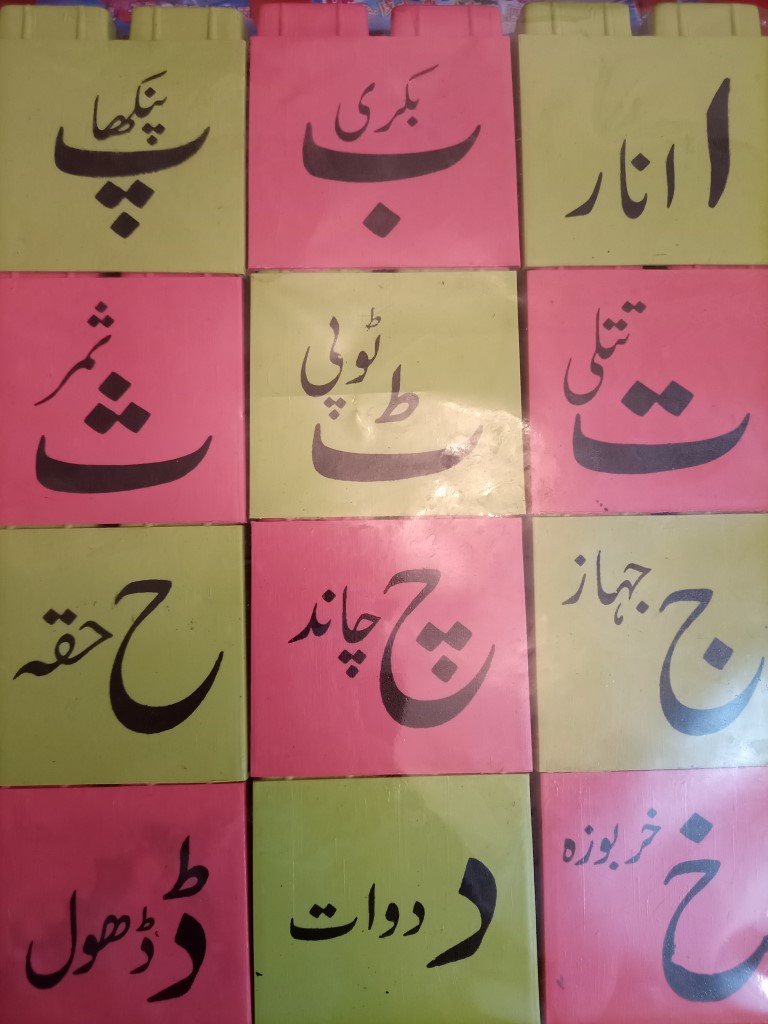 ا انار
ب بکری
پ پنکھا
ت تتلی
ٹ ٹوپی
ث ثمر
ج جہاز
چ چاند
ح حقہ
خ خربوزہ
د دوات
ڈ ڈھول